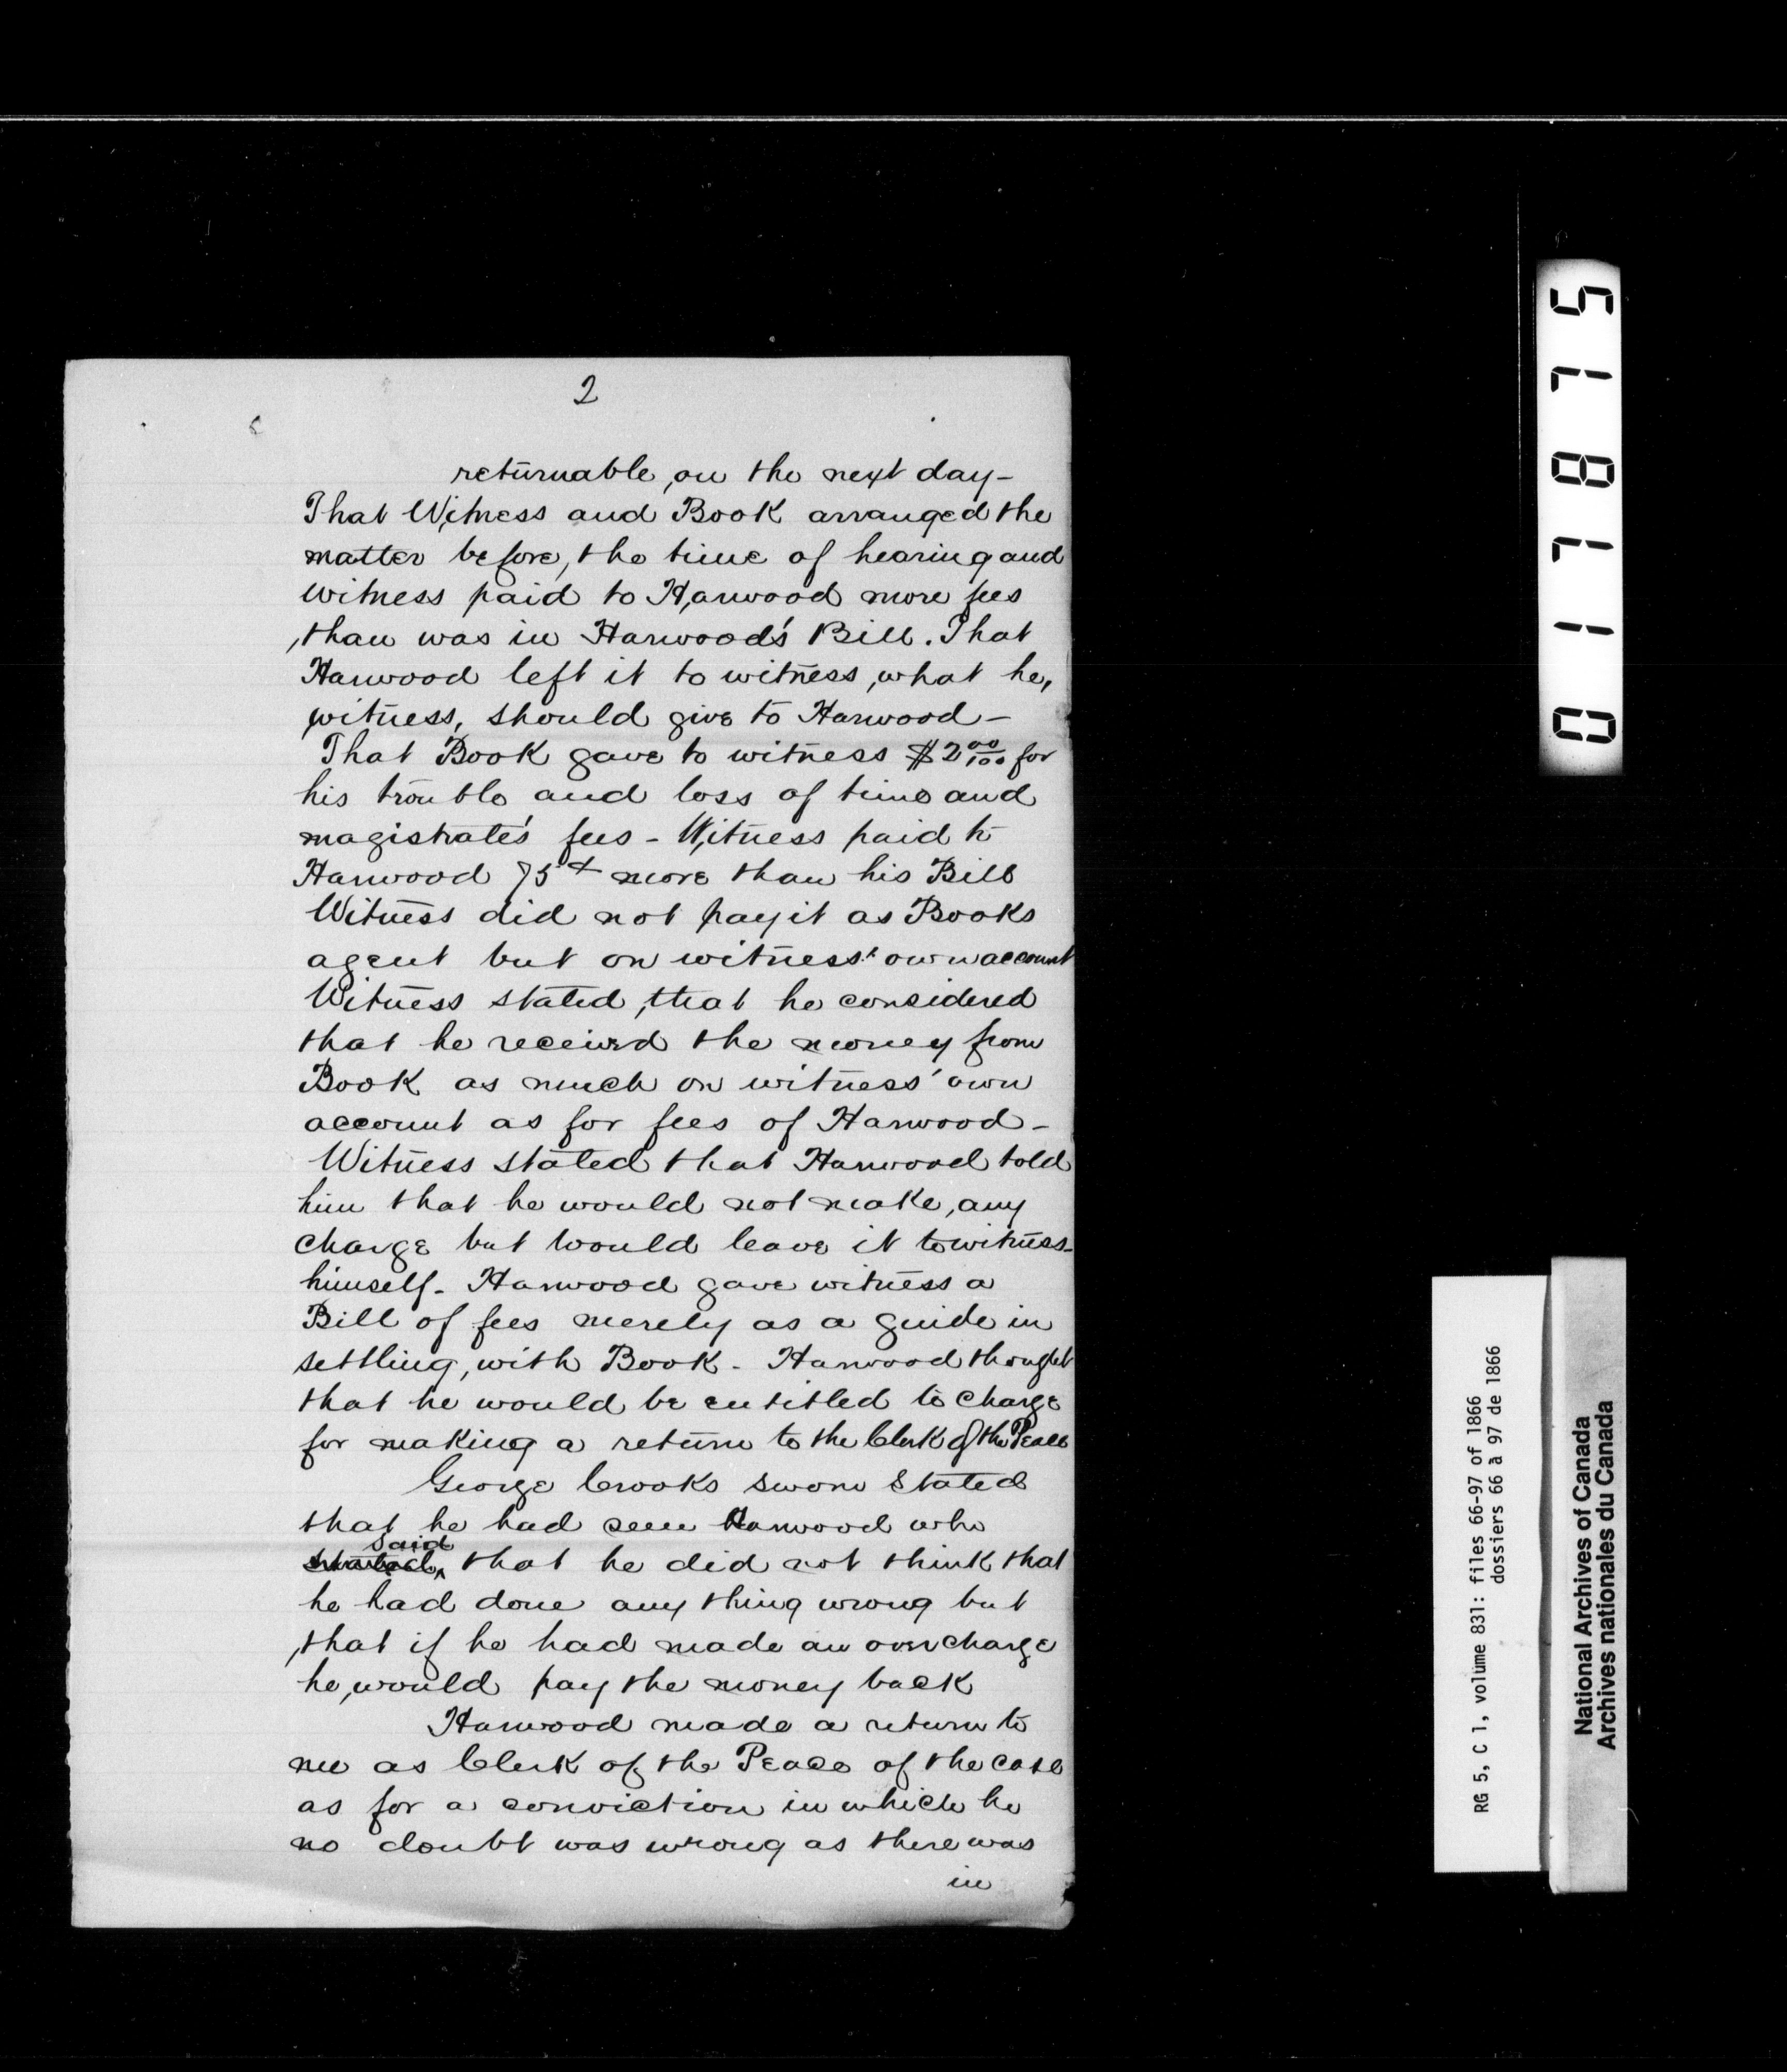 2
returnable, on the next day -
That Witness and Book arranged the
matter before, the time of hearing and
witness paid to Harwood more fees
, than was in Harwood's Bill. That
Harwood left it to witness, what he,
witness, should give to Harwood -
That Book gave to witness $2 00/100 for
his trouble and loss of time and
magistrate's fees - Witness paid to
Harwood 75 more than his Bill
Witness did not pay it as Books
agent but on witness' own account
Witness stated, that he considered
that he received the money from
Book as much on witness' own
account as for fees of Harwood -
Witness stated that Harwood told
him that he would not make, any
charge but would leave it to witness -
himself - Harwood gave witness a
Bill of fees merely as a guide in
settling, with Book - Harwood thought
that he would be entitled to charge
for making a return to the Clerk of the Peace
George Crooks sworn stated
that he had seen Harwood who
said
stated, that he did not think that
he had done any thing wrong but
, that if he had made an overcharge
he, would pay the money back
Harwood made a return to
me as Clerk of the Peace of the case
as for a conviction in which he
no doubt was wrong as there was
in
017875
RG 5, C 1, volume 831: files 66-97 of 1866
dossiers 66 à 97 de 1866
National Archives of Canada
Archives nationales du Canada